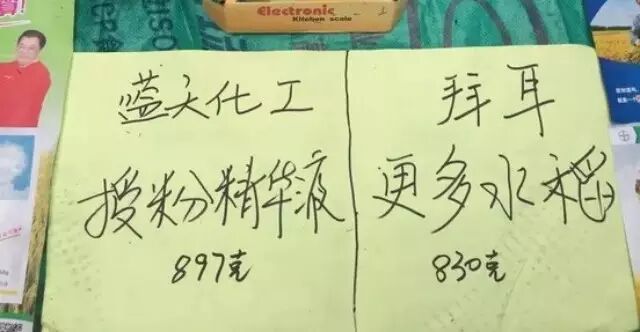 Electronic
Kitchen scale
蓝天化工
授粉精华液
897克
拜耳
更多水稻
830克